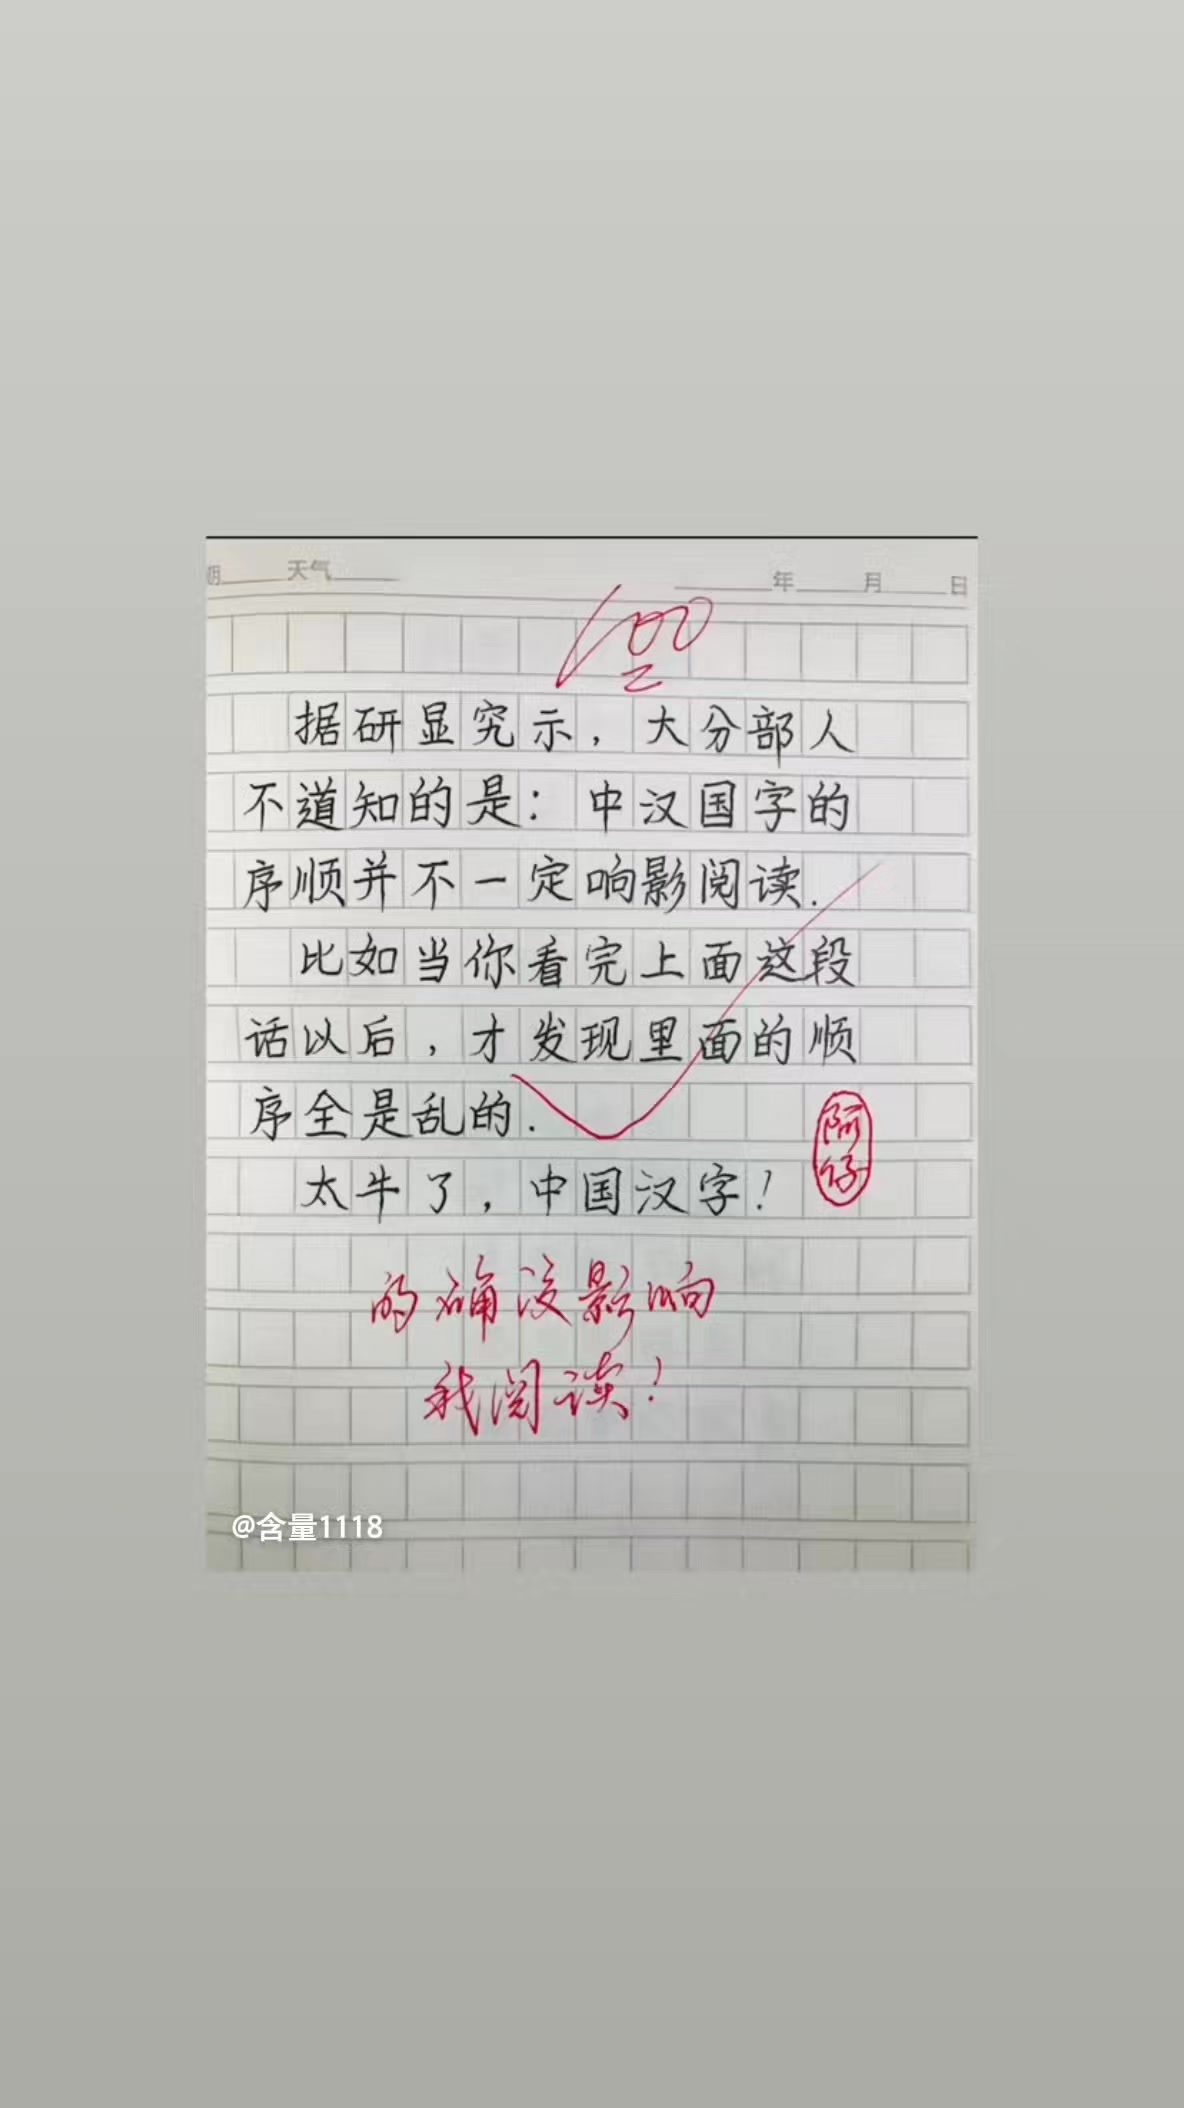 期 天气 年 月 日
100
据研显究示，大分部人
不道知的是：中汉国字的
序顺并不一定响影阅读.
比如当你看完上面这段
话以后，才发现里面的顺
序全是乱的.
太牛了，中国汉字！
的确没影响
我阅读！
@含量1118